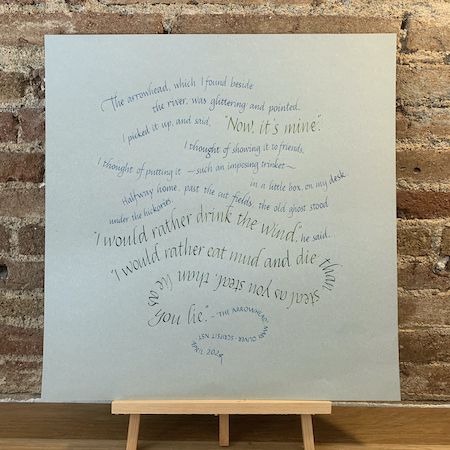 The arrowhead, which I found beside
the river, was glittering and pointed.
I picked it up, and said, "Now, it's mine".
I thought of showing it to friends.
I thought of putting it – such an imposing trinket –
in a little box, on my desk.
Halfway home, past the cut fields, the old ghost stood
under the hickories.
"I would rather drink the wind," he said.
"I would rather eat mud and die than
steal as you steal, than lie as
you lie." – THE ARROWHEAD, MARY OLIVER - SCRIPSIT NST
JUNE 2024